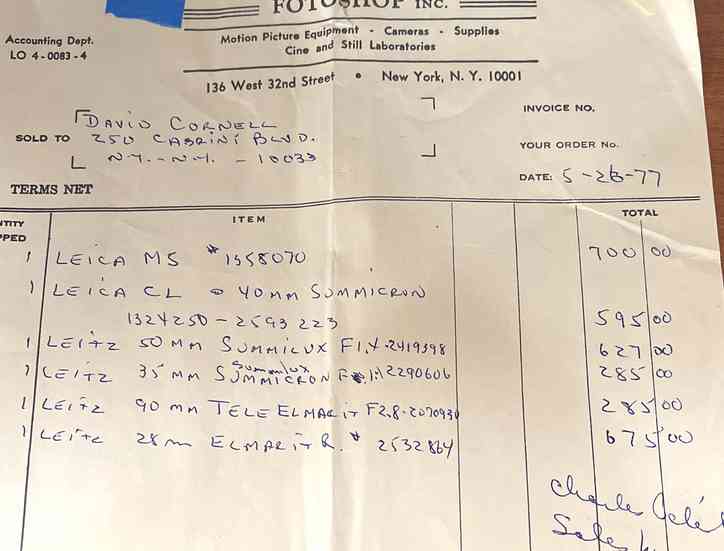 FOTOSHOP INC.
Accounting Dept.
LO 4-0083-4
Motion Picture Equipment - Cameras - Supplies
Cine and Still Laboratories
136 West 32nd Street • New York, N. Y. 10001
INVOICE NO.
SOLD TO DAVID CORNELL
250 CABRINI BLVD.
N.Y. - N.Y. - 10033
YOUR ORDER No.
DATE: 5-26-77
TERMS NET
NTITY
PPED
ITEM
TOTAL
1 LEICA M5 # 1358070 700 00
1 LEICA CL 40 MM SUMMICRON
1324250 - 2593223 595 00
1 LEITZ 50 MM SUMMILUX F1.4-2419398 627 00
Summilux
1 LEITZ 35 MM SUMMICRON 2290606 285 00
1 LEITZ 90 MM TELE ELMARIT F2.8- 285 00
1 LEITZ 28mm ELMARIT R. # 2532864 675 00
Charles
Sales